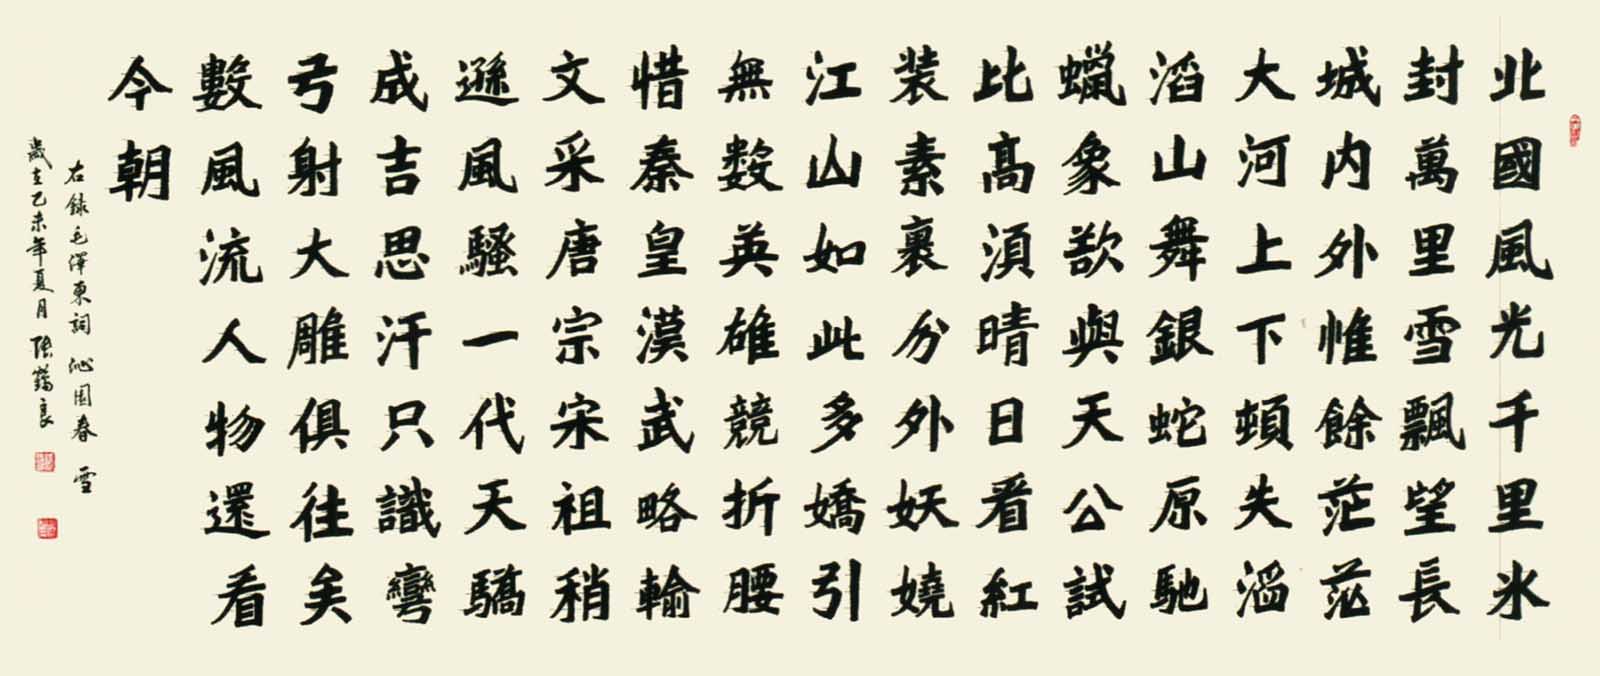 北國風光千里氷
封萬里雪飄望長
城内外惟餘茫茫
大河上下頓失滔
滔山舞銀蛇原馳
蠟象欲與天公試
比高須晴日看紅
装素裹分外妖嬈
江山如此多嬌引
無數英雄競折腰
惜秦皇漢武略輸
文采唐宗宋祖稍
遜風騷一代天驕
成吉思汗只識彎
弓射大雕俱往矣
數風流人物還看
今朝
右録毛澤東詞沁園春雪
歲在乙未年夏月張鶴良